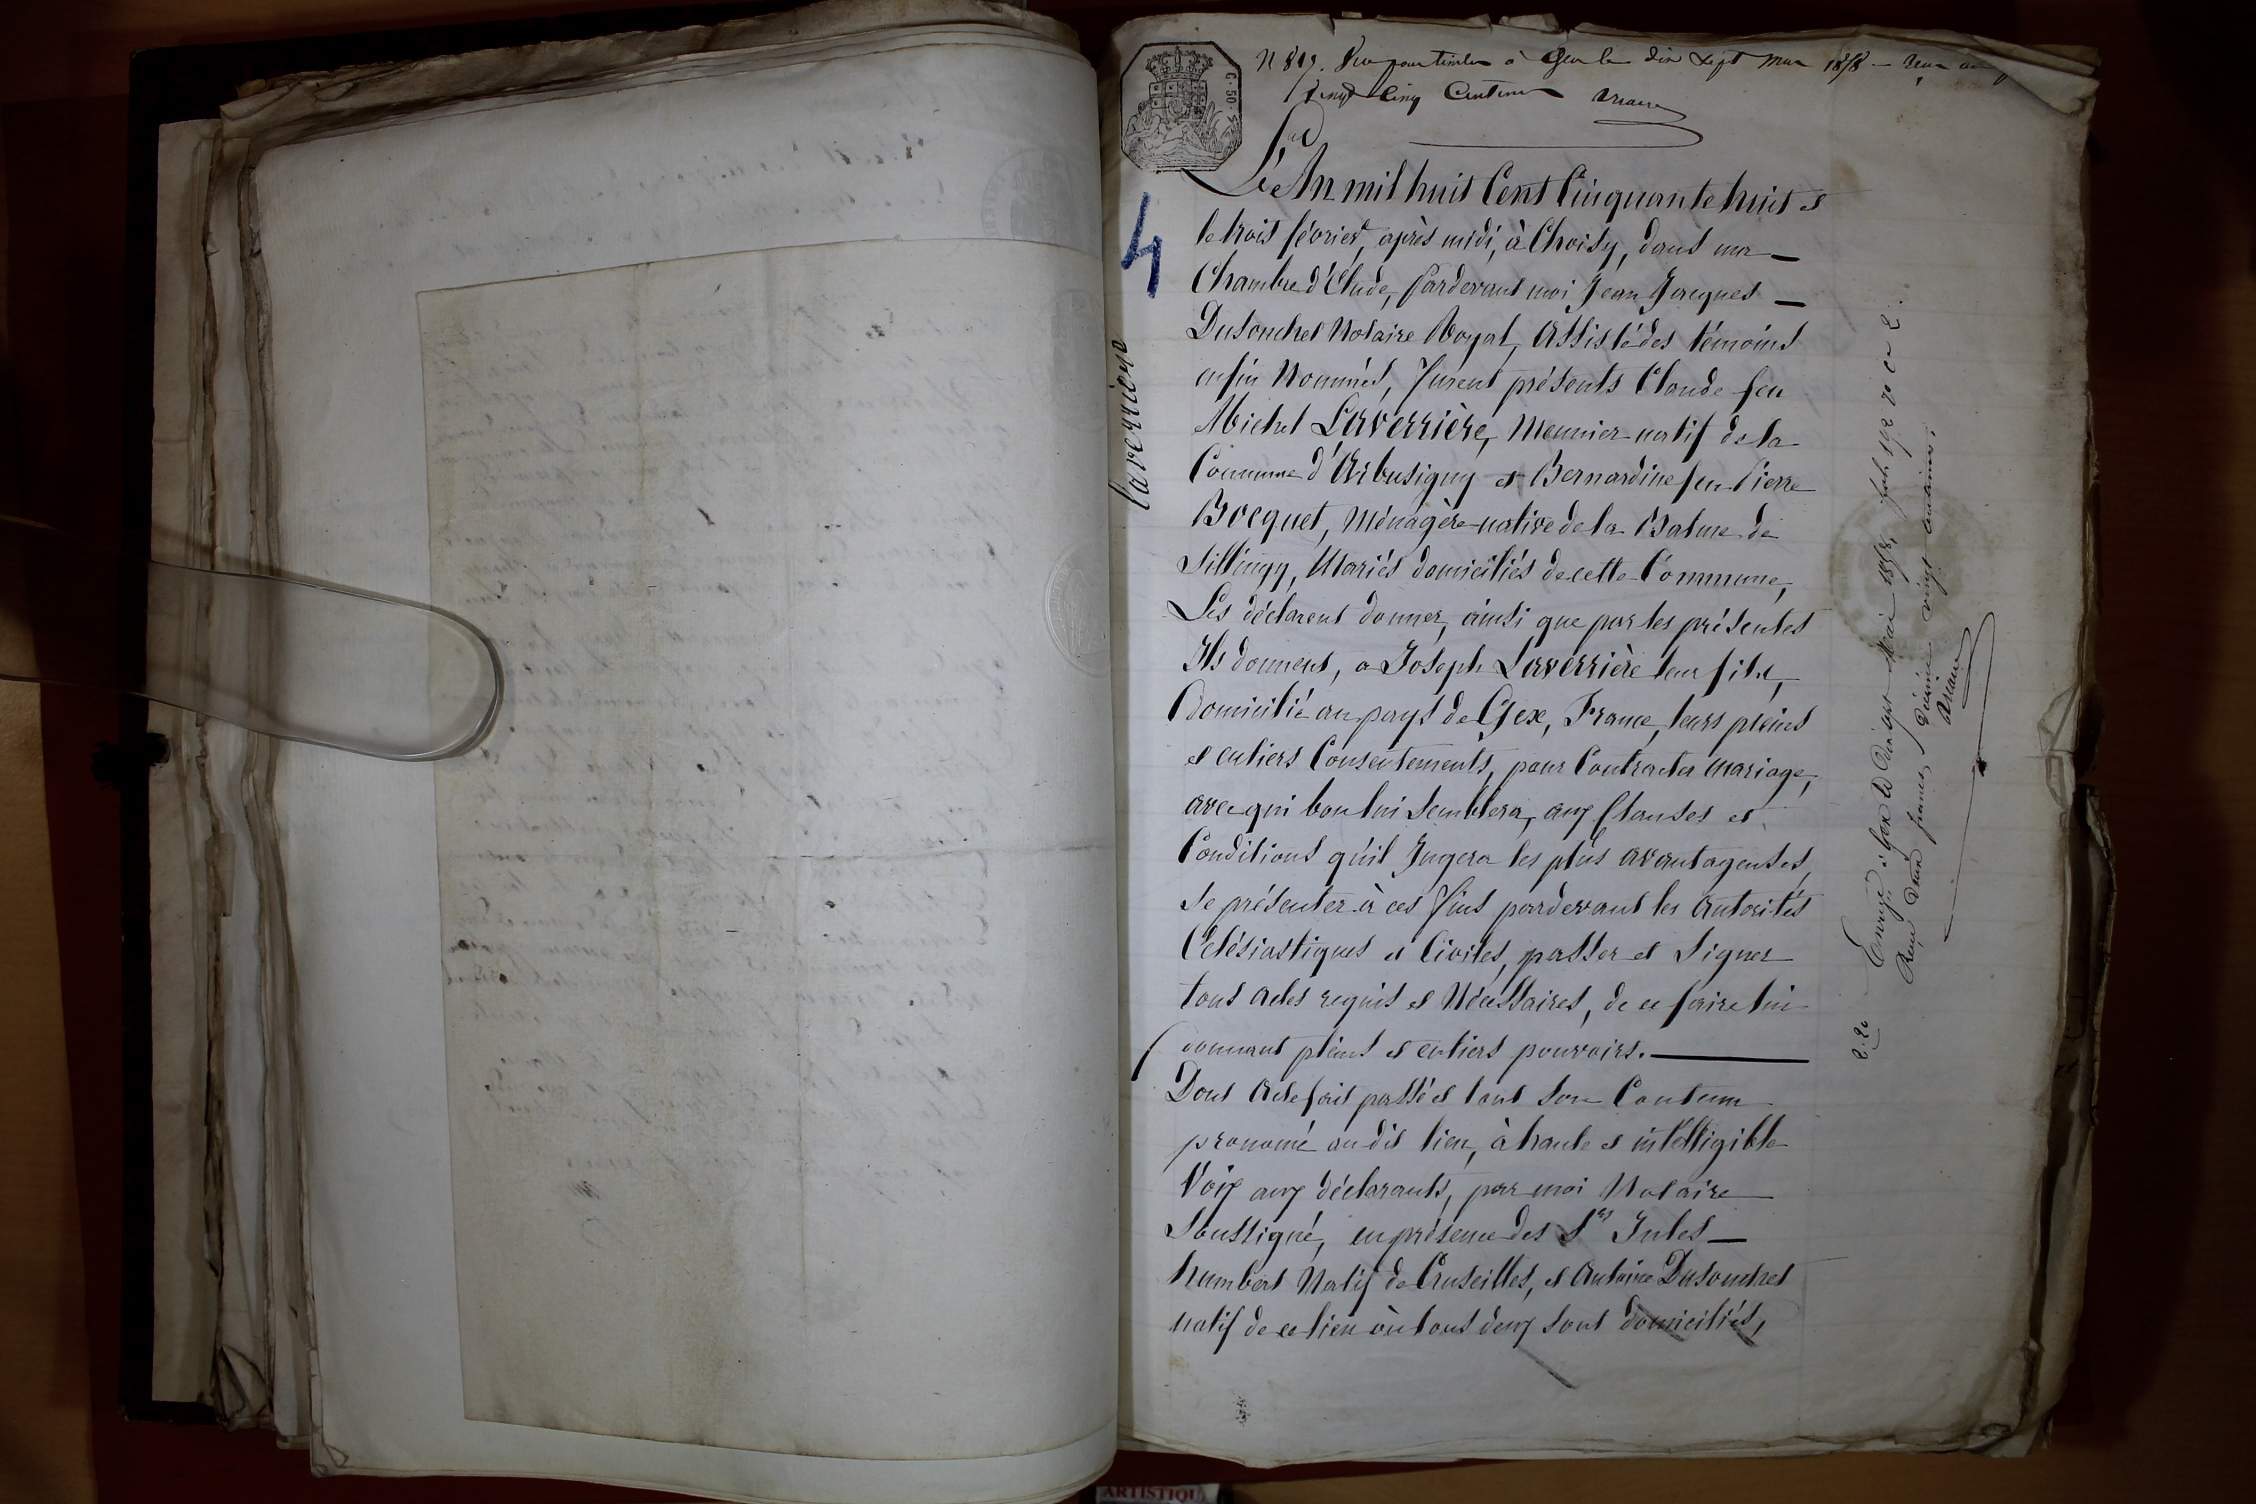 C. 50.
N 819. Vu pour timbre à Gex le dix sept Mai 1858 - Reçu
vingt cinq Centimes
4
Laverriere
L'An mil huit Cent Cinquante huit et
le trois février, après midi, à Choisy, dans ma
Chambre d'Etude, Pardevant moi Jean Jacques
Dusonchet Notaire Royal, Assisté des témoins
enfin Nommés, Furent présents Claude feu
Michel Laverrière, Meunier natif de la
Commune d'Arbusigny et Bernardine feu Pierre
Bocquet, Ménagère native de la Balme de
Sillingy, Mariés domiciliés de cette Commune,
Les déclarent donner, ainsi que par les présentes
Ils donnent, a Joseph Laverrière leur fils,
Domicilié au pays de Gex, France, leurs pleins
et entiers Consentements, pour Contracter mariage,
avec qui bon lui semblera, aux Clauses et
Conditions qu'il Jugera les plus avantageuses,
se présenter à ces fins pardevant les Autorités
Eclésiastiques et Civiles, passer et Signer
tous actes requis et Nécessaires, de ce faire lui
donnant pleins et entiers pouvoirs.
Dont Acte fait passé et tout son Contenu
prononcé au dit lieu, à haute et intelligible
Voix aux déclarants, par moi Notaire
Soussigné, en présence des Srs Jules
humbert Natif de Cruseilles, et Antoine Dusonchet
natif de ce lieu où tous deux sont domiciliés,
2.20
Enregé à Gex le dix sept Mai 1858, folio 192
Reçu deux francs, décime vingt centimes.
ARTISTIQU